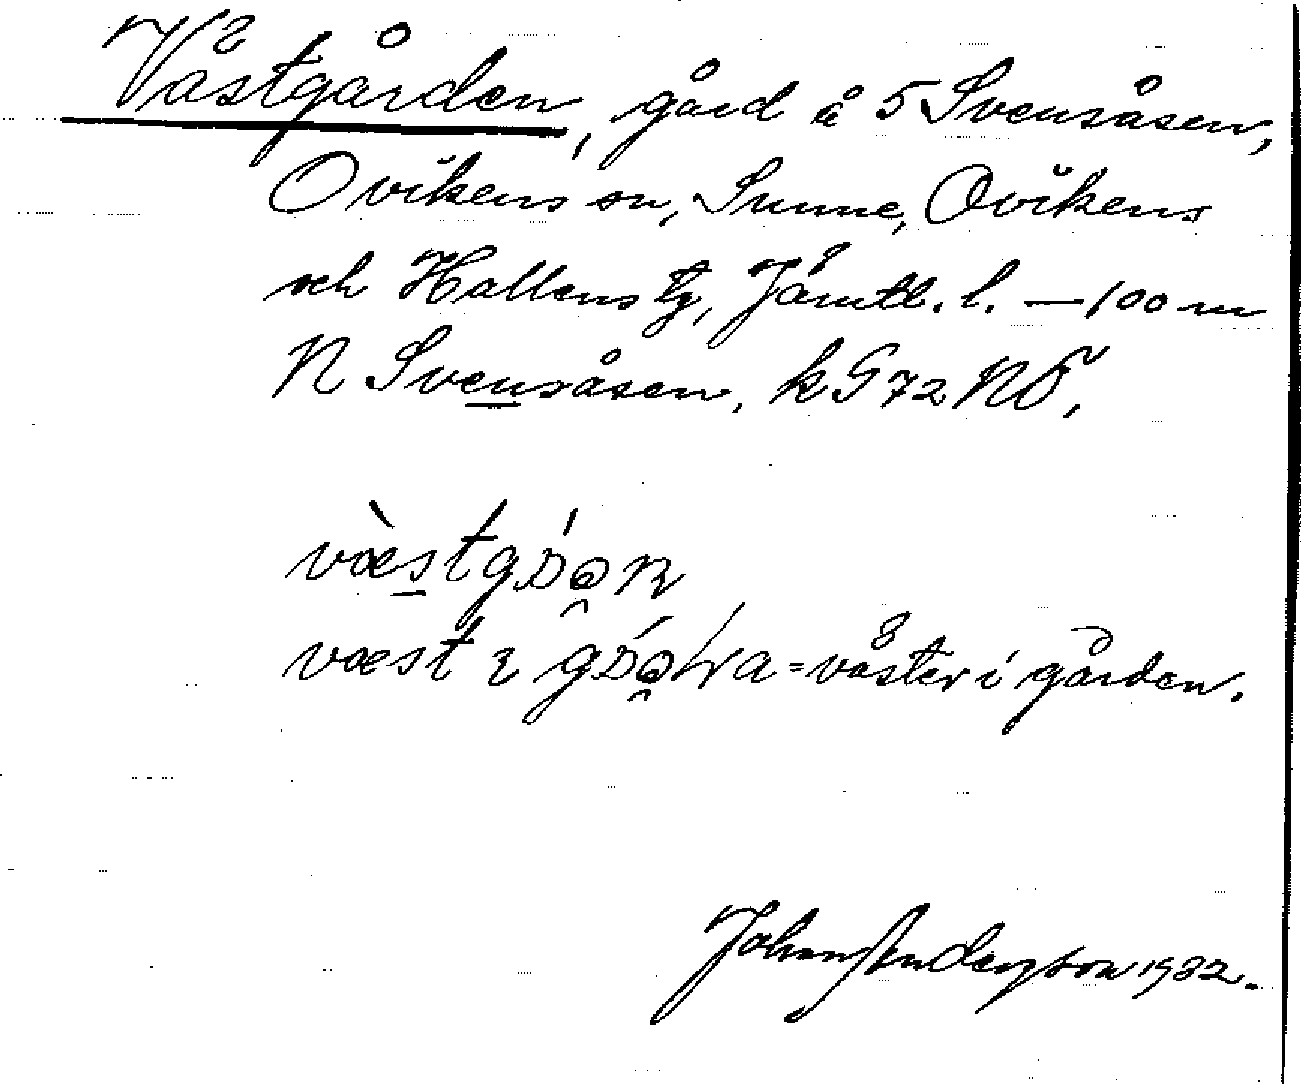 Västgården, gård å 5 Svensåsen,
Ovikens sn, Sunne, Ovikens
och Hallens tg, Jämtl. l. — 100 m
N Svensåsen, k G 72 NÖ,
väster i gården.
Johan Anderson 1932.